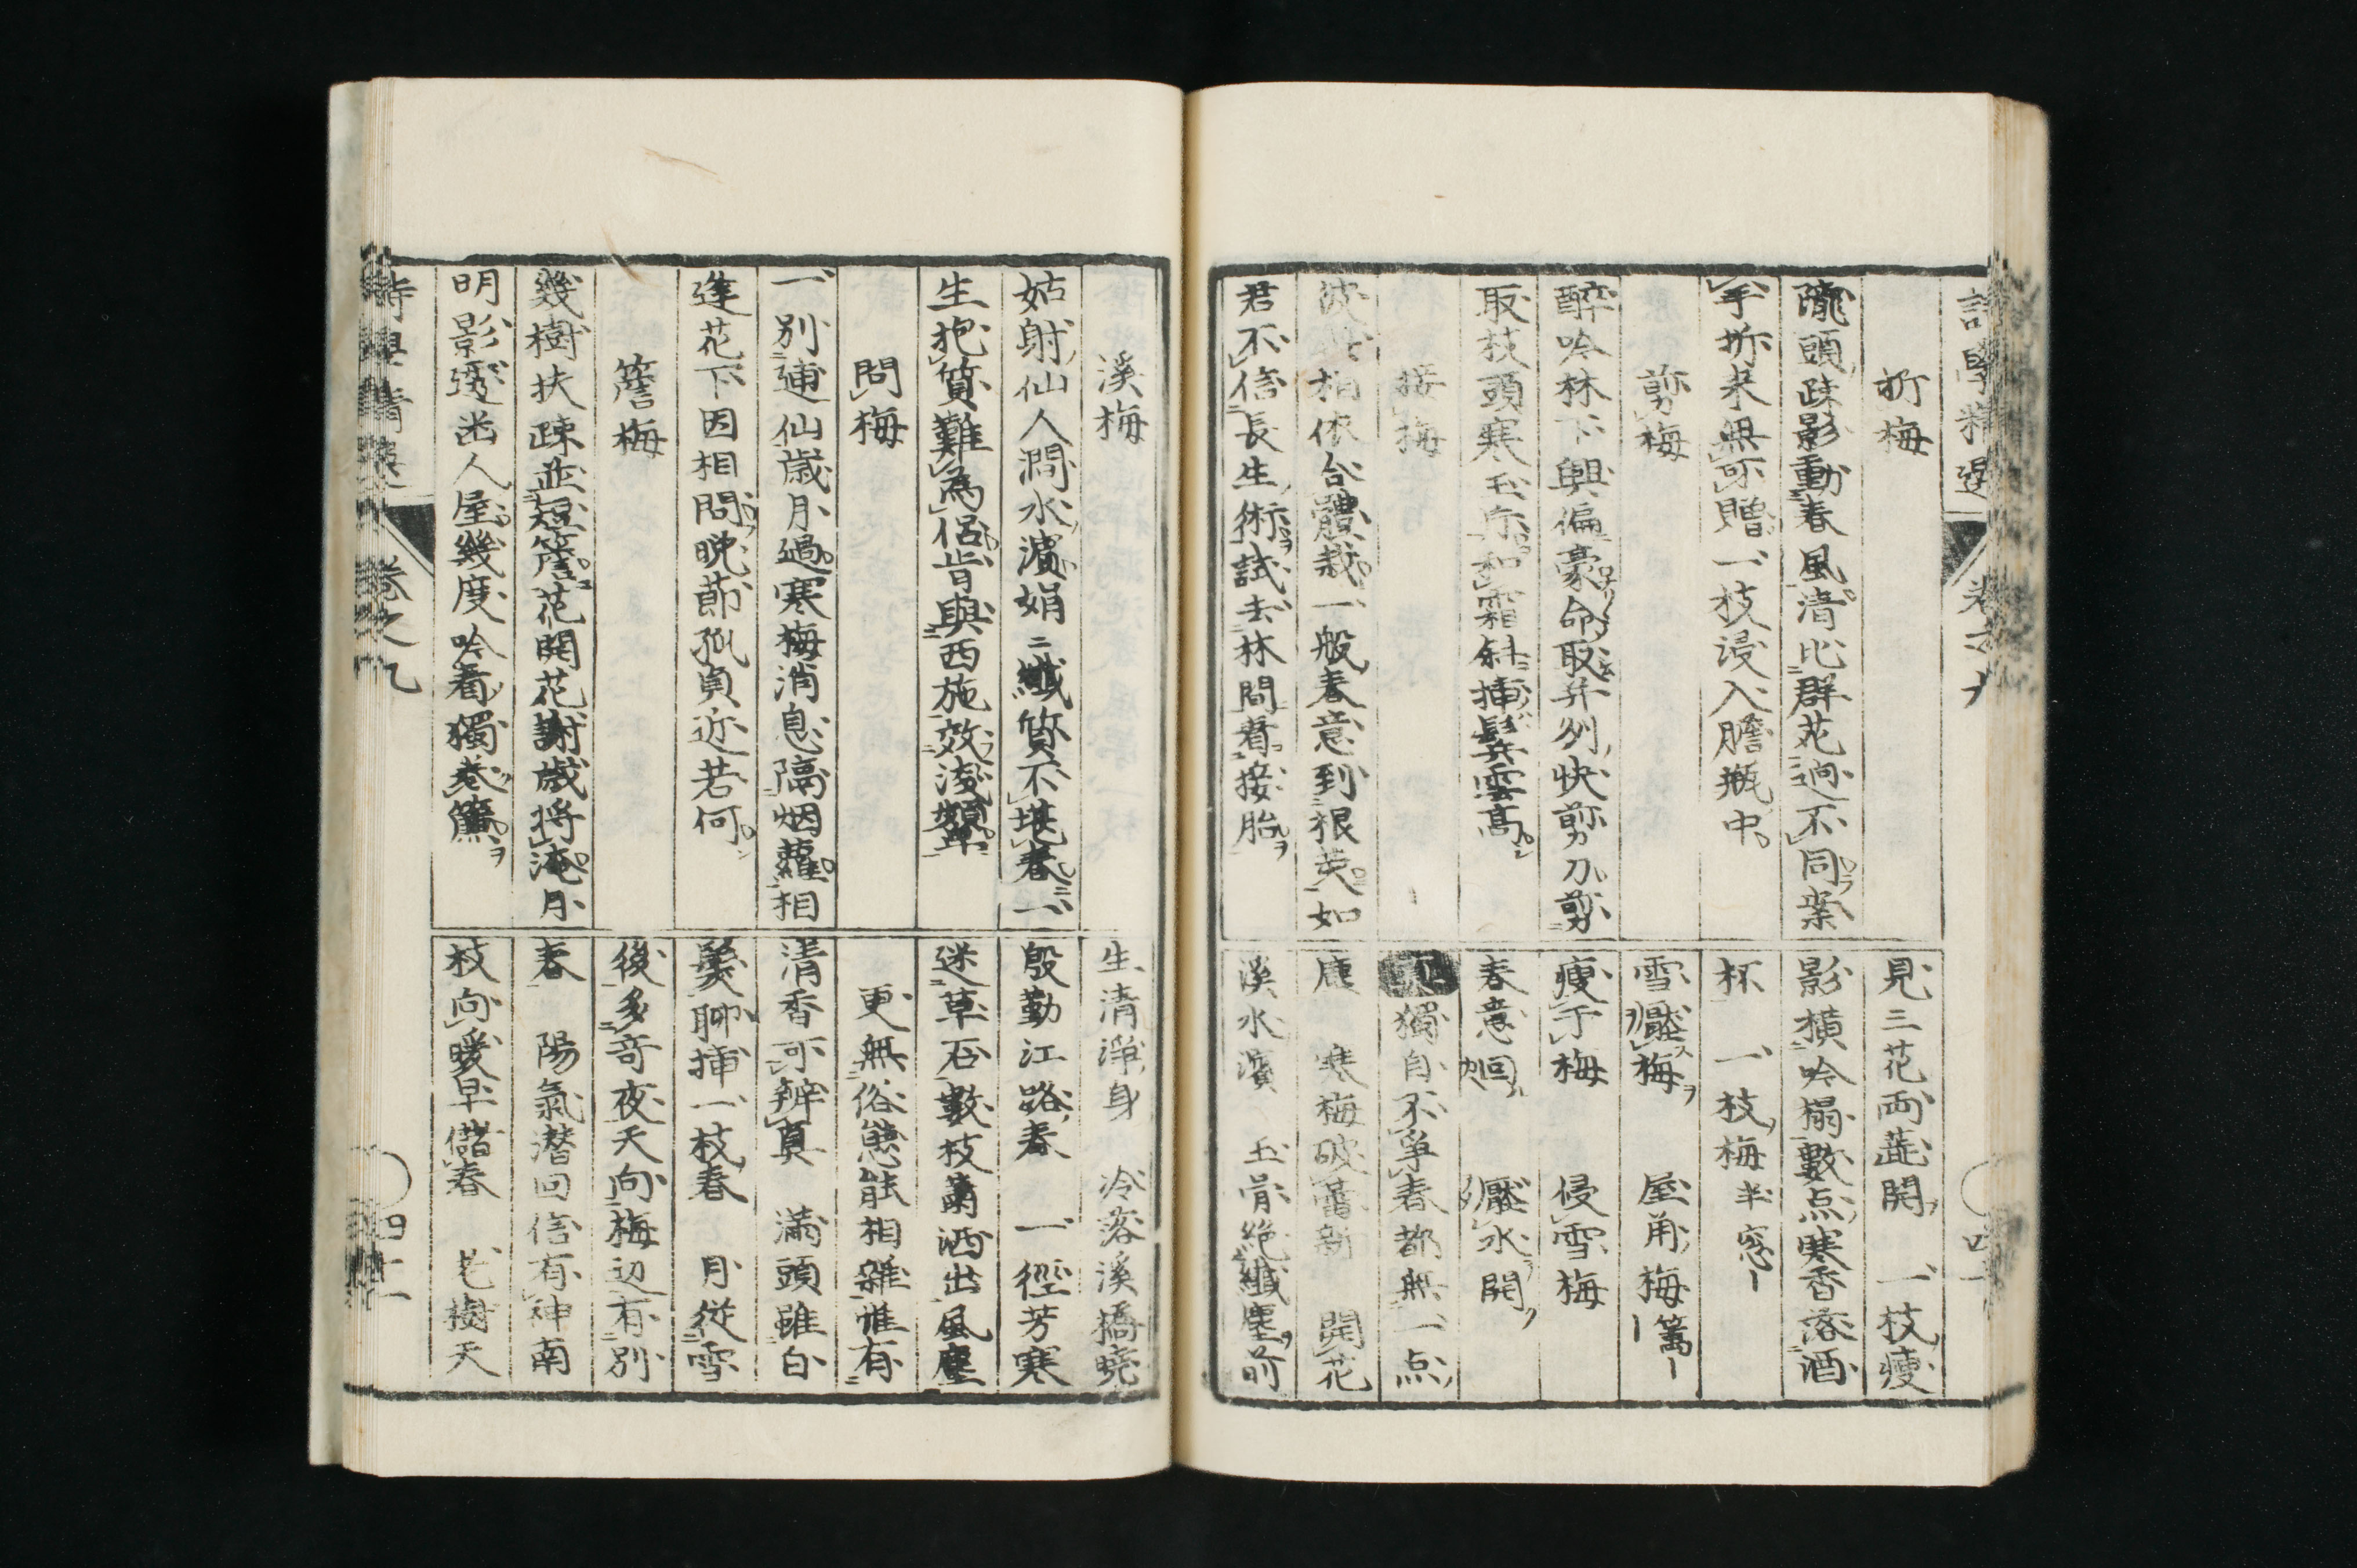 折梅
隴頭疎影動春風清比群花逈不同案
手折来無可贈一枝浸入膽瓶中
剪梅
醉吟林下興偏豪命取并刕快剪刀剪
取枝頭寒玉斥和霜斜挿鬂雲髙
接梅
相依合體栽一般春意到根荄如
君不信長生術試去林間看接胎
見三花両蕋開 一枝痩
影横吟榻數点寒香落酒
杯 一枝梅半窓
雪壓梅 屋角梅籬
痩于梅 侵雪梅
春意回 壓水開
獨自不爭春都無一点
塵 寒梅破蕾新 開花
溪水濱 玉骨絶纎塵前
溪梅
姑射仙人澗水濱娟〻纎質不堪春一
生抱質難為侣肯與西施效淺顰
問梅
一別逋仙歳月過寒梅消息隔烟蘿相
逢花下因相問晩莭孤貞近若何
簷梅
幾樹扶疎並短簷花開花謝歳将淹月
明影透幽人屋幾度吟看獨巻簾
生清淨身 冷落溪橋曉
殷勤江路春 一徑芳寒
迷草石數枝蕭洒出風塵
更無俗態能相雜惟有
清香可辨真 満頭雖白
髪聊挿一枝春 月從雪
後多竒夜天向梅辺有別
春 陽氣潜回信有神南
枝向暖早儲春 老樹天
巻之九
四十一